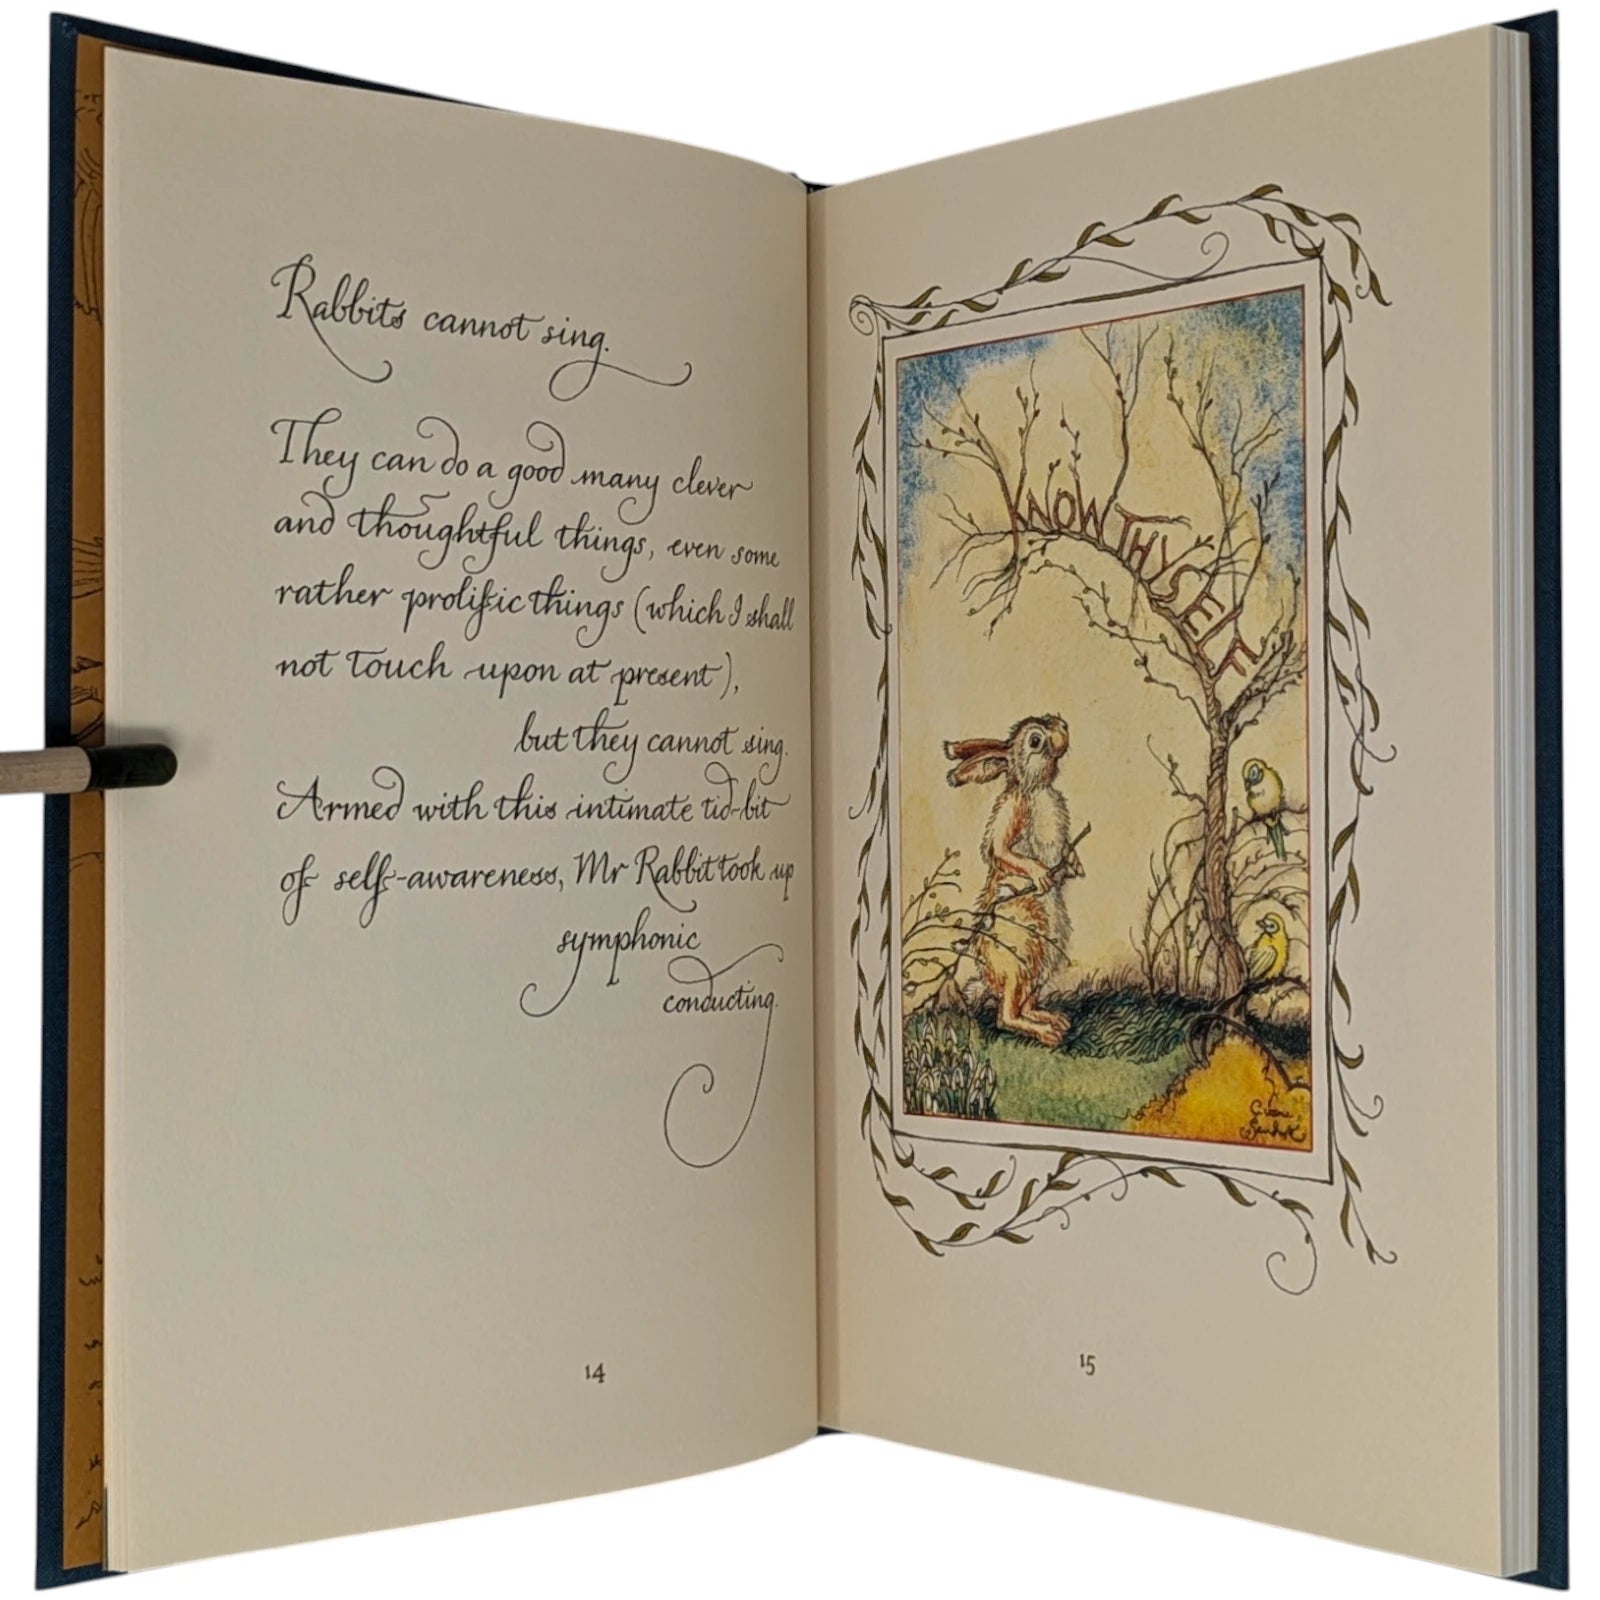 Rabbits cannot sing.
They can do a good many clever
and thoughtful things, even some
rather prolific things (which I shall
not touch upon at present),
but they cannot sing.
Armed with this intimate tid-bit
of self-awareness, Mr Rabbit took up
symphonic
conducting.
14
KNOW THYSELF
15